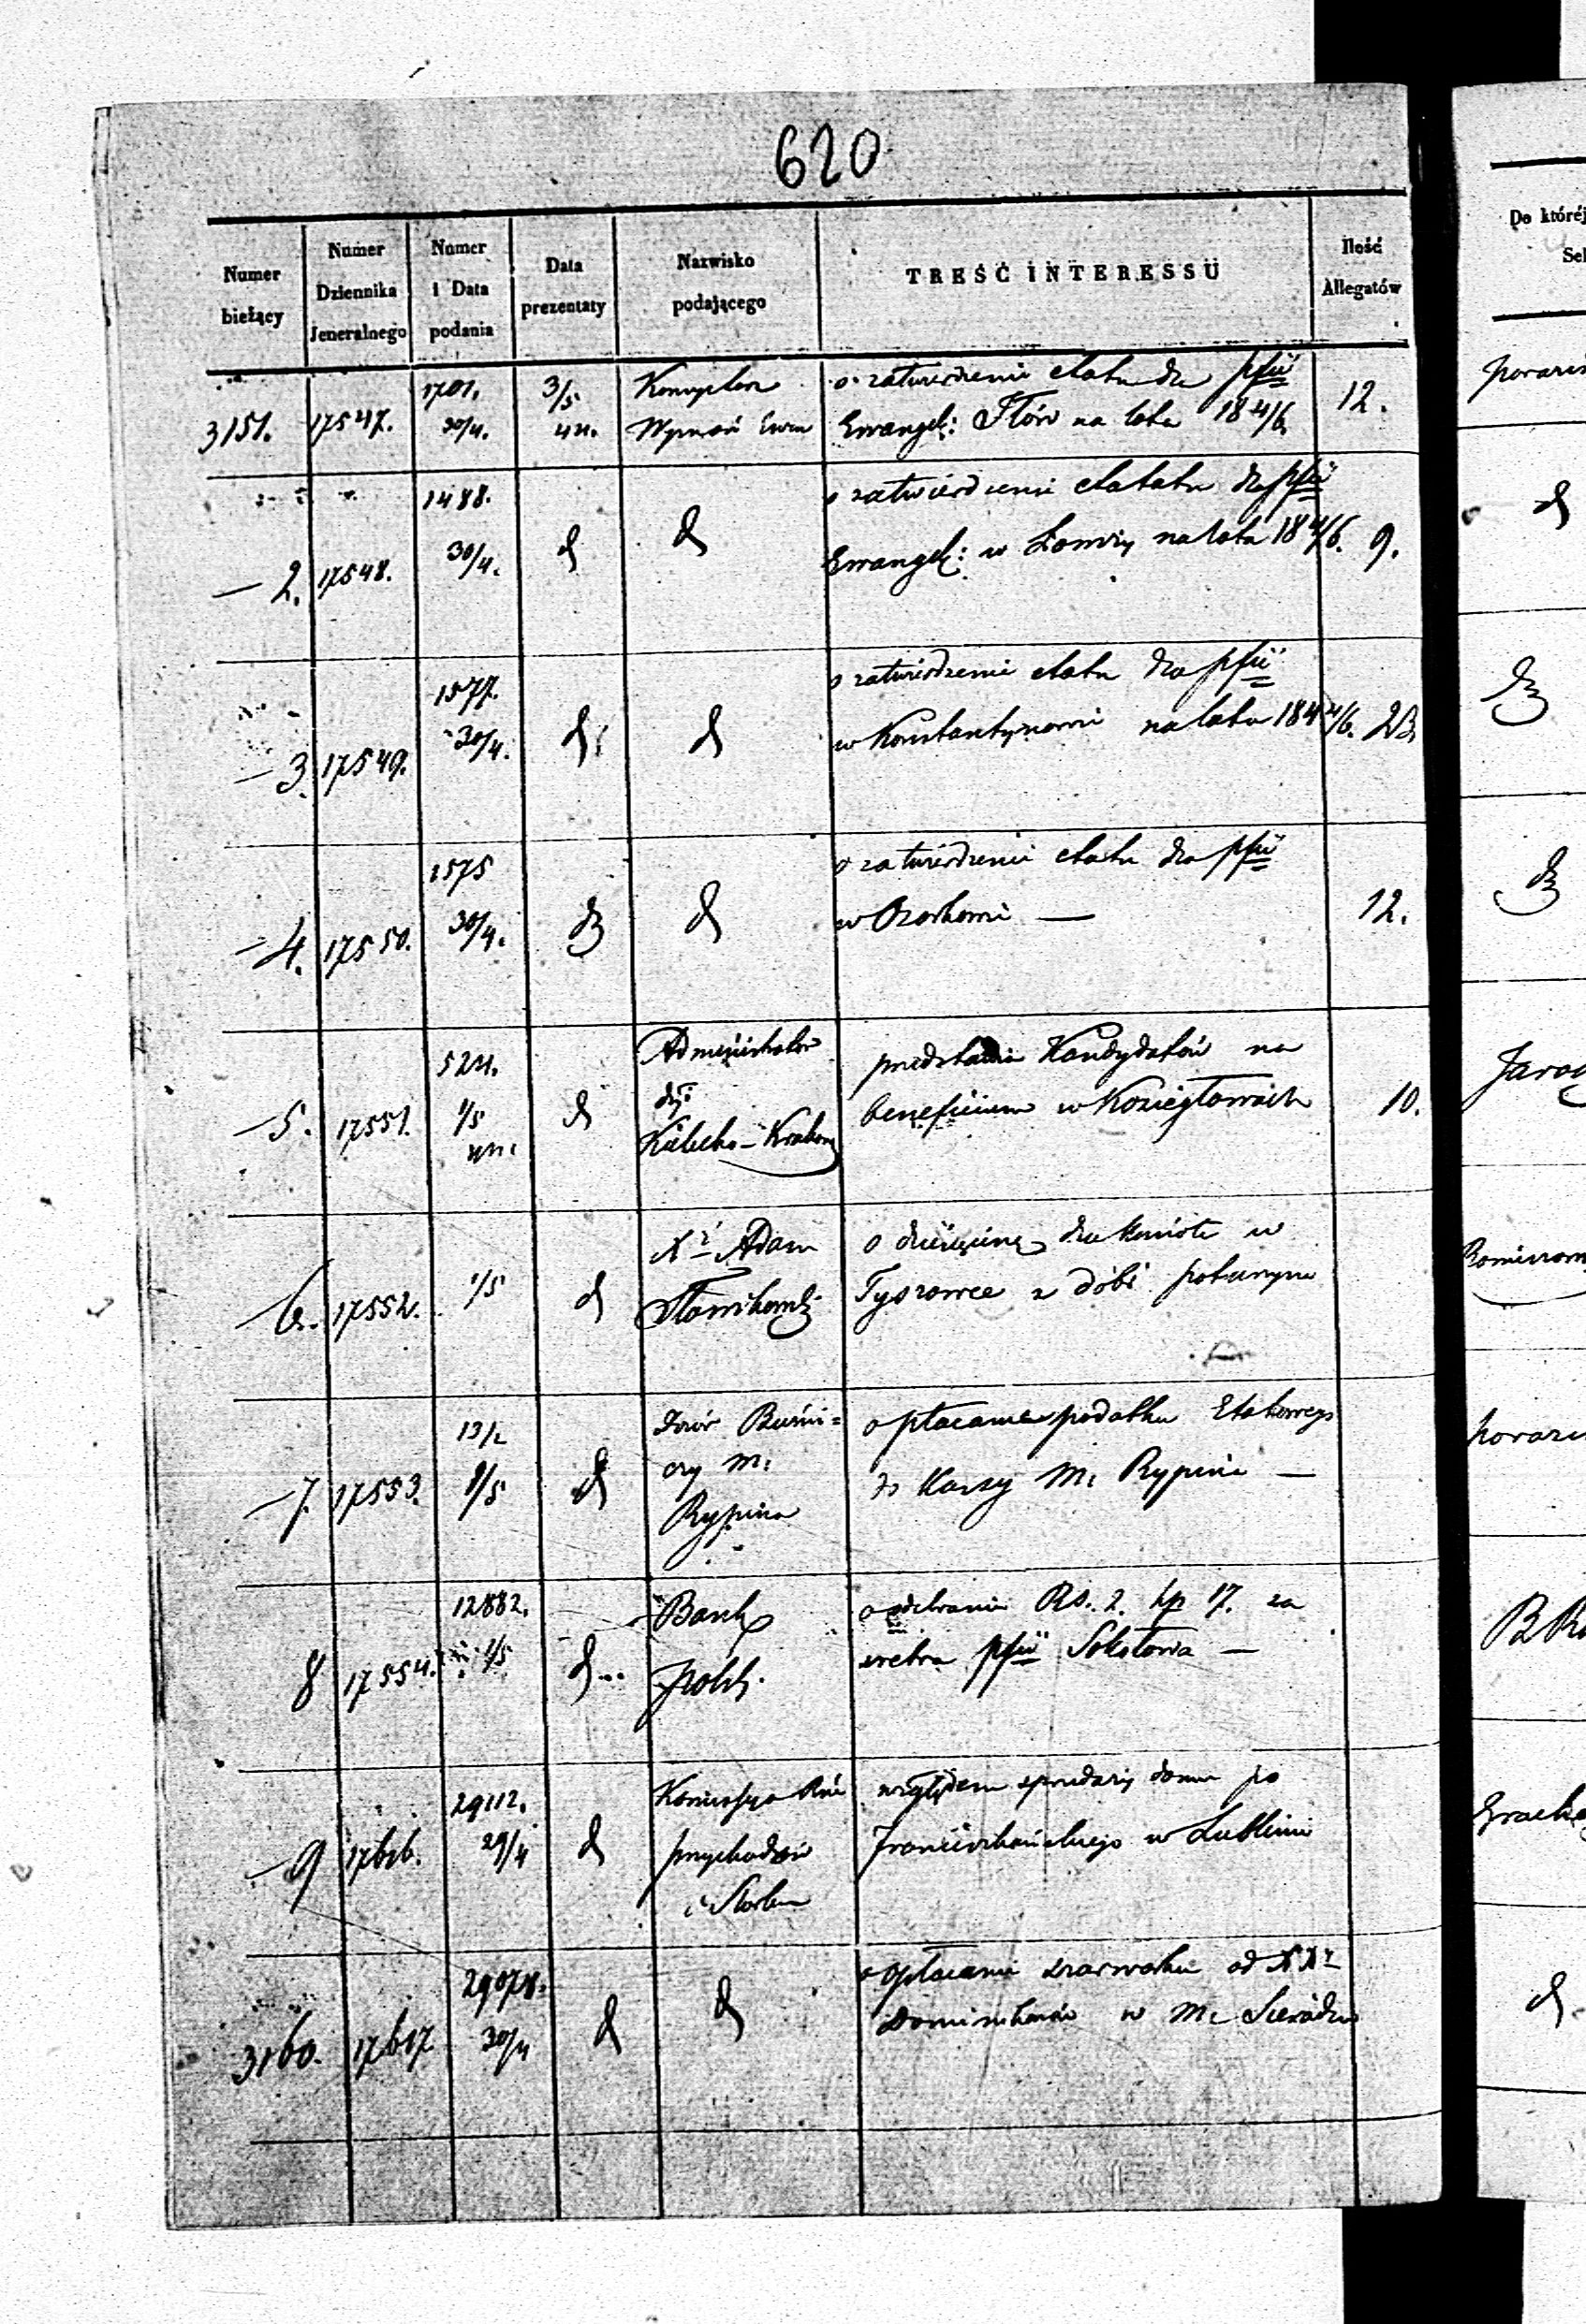 620
Numer bieżący
Numer Dziennika Jeneralnego
Numer i Data podania
Data prezentaty
Nazwisko podającego
TREŚĆ INTERESSU
Ilość Allegatów
Do któréj
3151. 17547. 1701. 30/4. 3/5 44.
Wyznań Ewan
o zatwierdzenie etatu dla pfii
Ewangel: Iłów na lata 184 4/6.
12.
— 2. 17548. 1488. 30/4. d d
o zatwierdzenie etatu dla pfii
Ewangel: w Łomży na lata 184 4/6.
9.
— 3. 17549. 1577. 30/4. d d
o zatwierdzenie etatu dla pfii
w Konstantynowie na lata 184 4/6.
23.
— 4. 17550. 1575 30/4. d d
o zatwierdzenie etatu dla pfii
w Ozorkowie —
12.
— 5. 17551. 524. 1/5 44. d
Administrator
dyi
Kielecko-Krakow
przedstawia Kandydatów na
beneficium w Koziegłowach
10.
— 6. 17552. 1/5 d
Xz Adam
o dziesięcinę dla kościoła w
Tyszowce z dóbr
— 7. 17553. 13/2 1/5 d
Dozór Bużni=
czy m.
Rypina
o płacenie podatku Etatowego
do Kassy M. Rypina —
8 17554. 12882. 1/5 d
Bank
Polsk.
o odebranie Rs. 2. kp 17. za
srebra pfii Sokołowa —
— 9 17616. 29112. 29/4 d
Kommissya Rzą
przychodów
i Skarbu
względem sprzedaży domu po
Franciszkańskiego w Lublinie
3160. 17617 29078. 30/4 d d
o opłacanie szarwarku od XXz
Dominikanów w M. Sieradzu